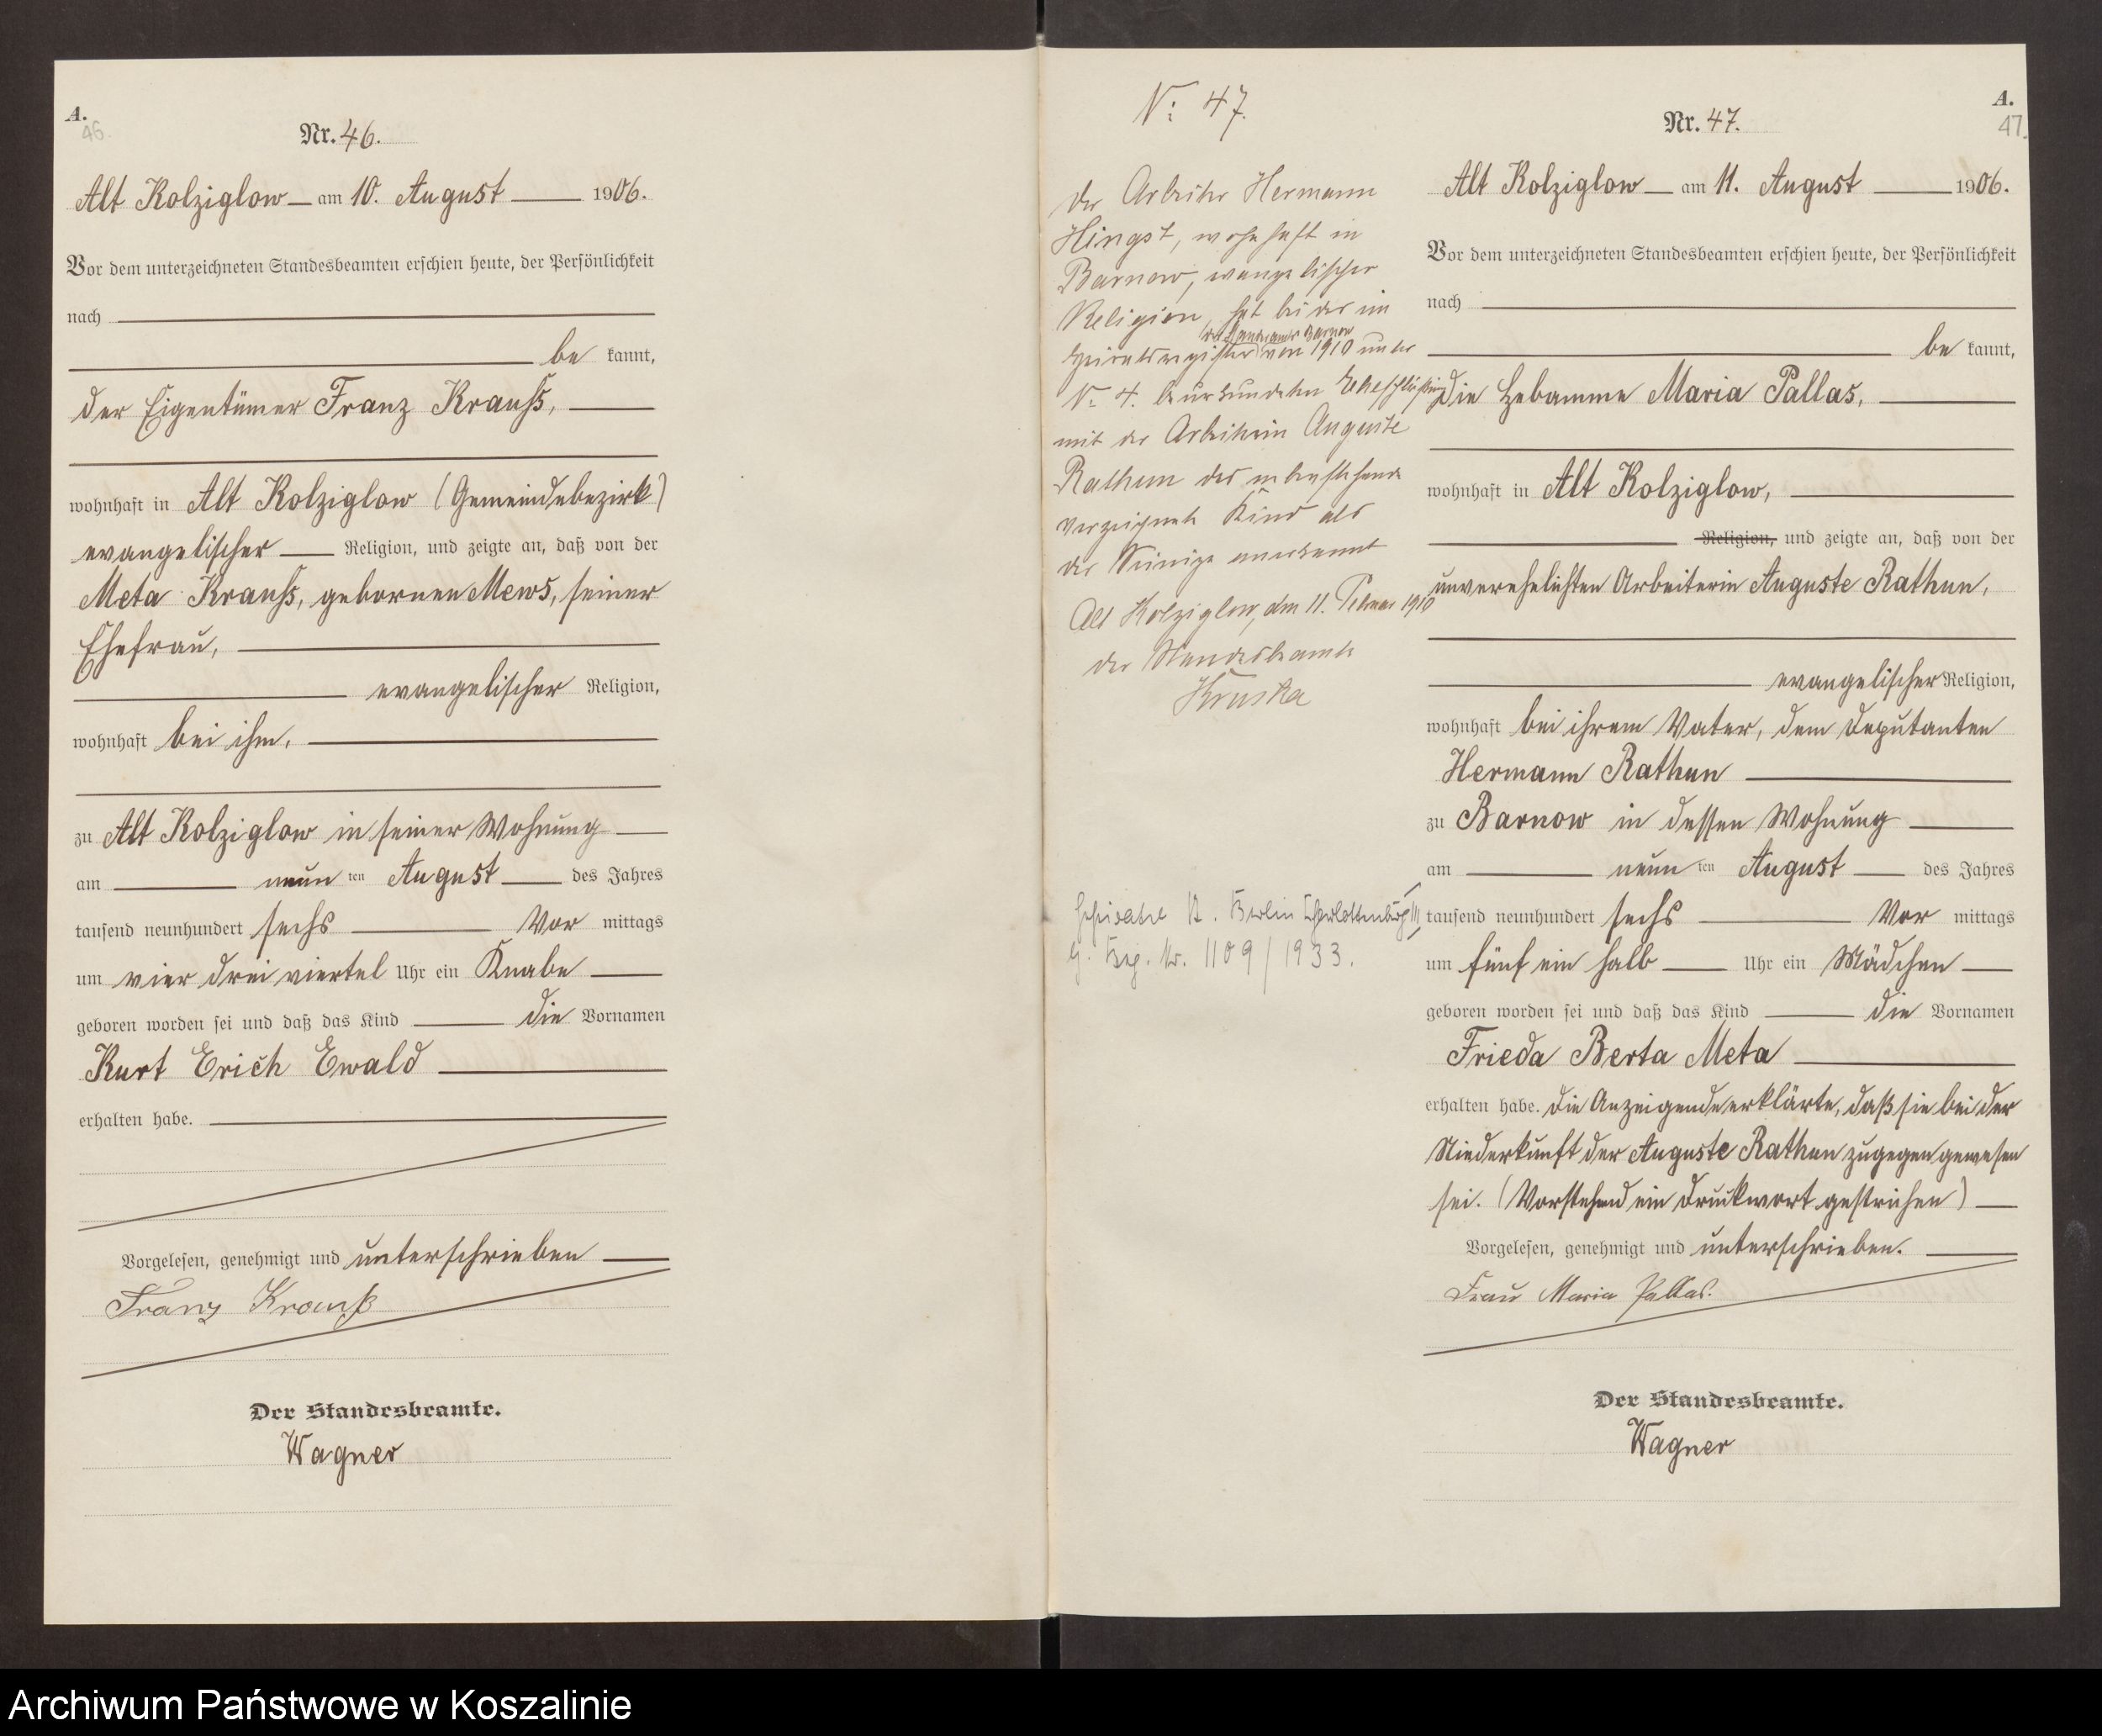 A.
46.
Nr. 46.
Alt Kolziglow am 10. August 1906.
Vor dem unterzeichneten Standesbeamten erschien heute, der Persönlichkeit
nach
be kannt,
der Eigentümer Franz Krauß,
wohnhaft in Alt Kolziglow (Gemeindebezirk)
evangelischer Religion, und zeigte an, daß von der
Meta Krauß, gebornen Mews, seiner
Ehefrau,
evangelischer Religion,
wohnhaft bei ihm,
zu Alt Kolziglow in seiner Wohnung
am neun ten August des Jahres
tausend neunhundert sechs Vor mittags
um vier drei viertel Uhr ein Knabe
geboren worden sei und daß das Kind die Vornamen
Kurt Erich Ewald
erhalten habe.
Vorgelesen, genehmigt und unterschrieben
Franz Krauß
Der Standesbeamte.
Wagner
N: 47.
der Arbeiter Hermann
Hingst, wohnhaft in
Barnow, evangelischer
Religion, hat bei der im
des Standesamts Barnow
Heiratsregister von 1910 unter
N: 4. beurkundeten Eheschließung
mit der Arbeiterin Auguste
Rathun das nebenstehende
verzeichnete Kind als
das Seinige anerkannt
Alt Kolziglow, den 11. Februar 1910
der Standesbeamte
Kruska
Berlin Charlottenburg III
Nr. 1109/1933.
A.
47.
Nr. 47.
Alt Kolziglow am 11. August 1906.
Vor dem unterzeichneten Standesbeamten erschien heute, der Persönlichkeit
nach
be kannt,
die Hebamme Maria Pallas,
wohnhaft in Alt Kolziglow,
Religion, und zeigte an, daß von der
unverehelichten Arbeiterin Auguste Rathun,
evangelischer Religion,
wohnhaft bei ihrem Vater, dem Deputanten
Hermann Rathun
zu Barnow in dessen Wohnung
am neun ten August des Jahres
tausend neunhundert sechs Vor mittags
um fünf ein halb Uhr ein Mädchen
geboren worden sei und daß das Kind die Vornamen
Frieda Berta Meta
erhalten habe. Die Anzeigende erklärte, daß sie bei der
Niederkunft der Auguste Rathun zugegen gewesen
sei. (Vorstehend ein Druckwort gestrichen)
Vorgelesen, genehmigt und unterschrieben.
Frau Maria Pallas.
Der Standesbeamte.
Wagner
Archiwum Państwowe w Koszalinie